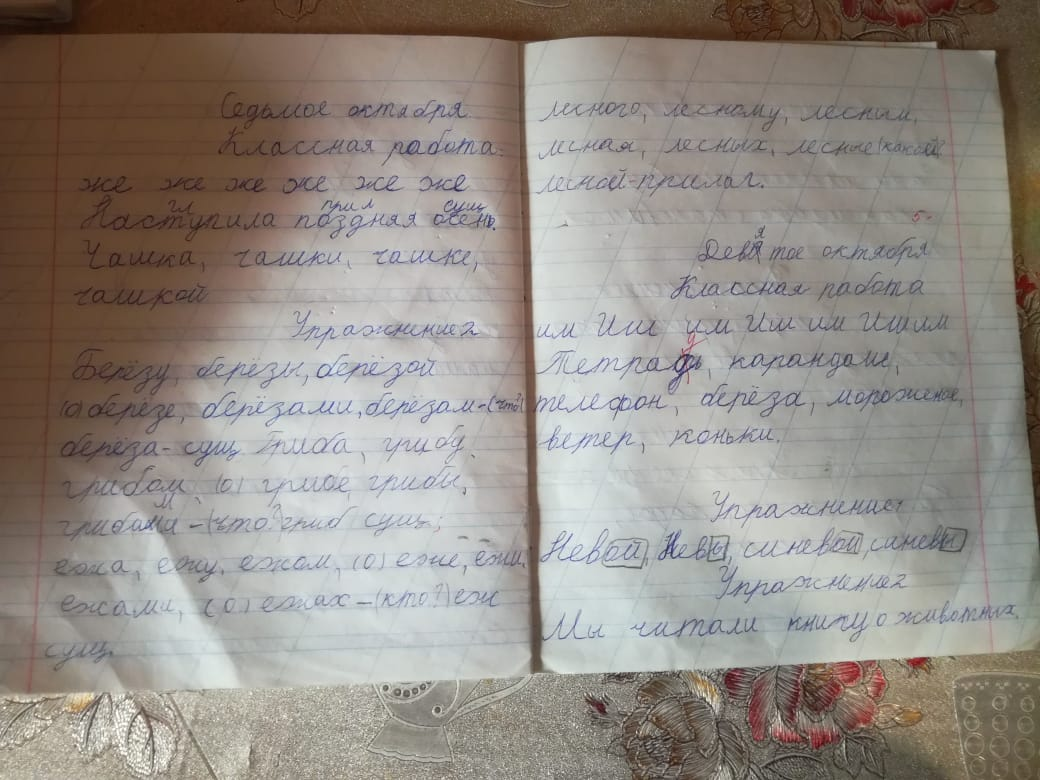 Седьмое октября.
Классная работа.
же же же же же же
гл прил сущ
Наступила поздняя осень.
Чашка, чашки, чашке,
чашкой
Упражнение 2
Берёзу, берёзы, берёзой
(о) берёзе, берёзами, берёзам - (что?)
берёза - сущ. Гриба, грибу,
грибом, (о) грибе, грибы,
грибами - (что? гриб сущ.;
ежа, ежу, ежом, (о) еже, ежи,
ежами, (о) ежах - (кто?) ёж
сущ.
лесного, лесному, лесным,
лесная, лесных, лесные (какой?
лесной - прилаг.
5-
Девятое октября
Классная работа
им Иш им Им им Ишим
Тетрадь, карандаш,
телефон, берёза, мороженое,
ветер, коньки.
Упражнение 1
Невой, Невы, синевой, синевы
Упражнение 2
Мы читали книгу о животных.